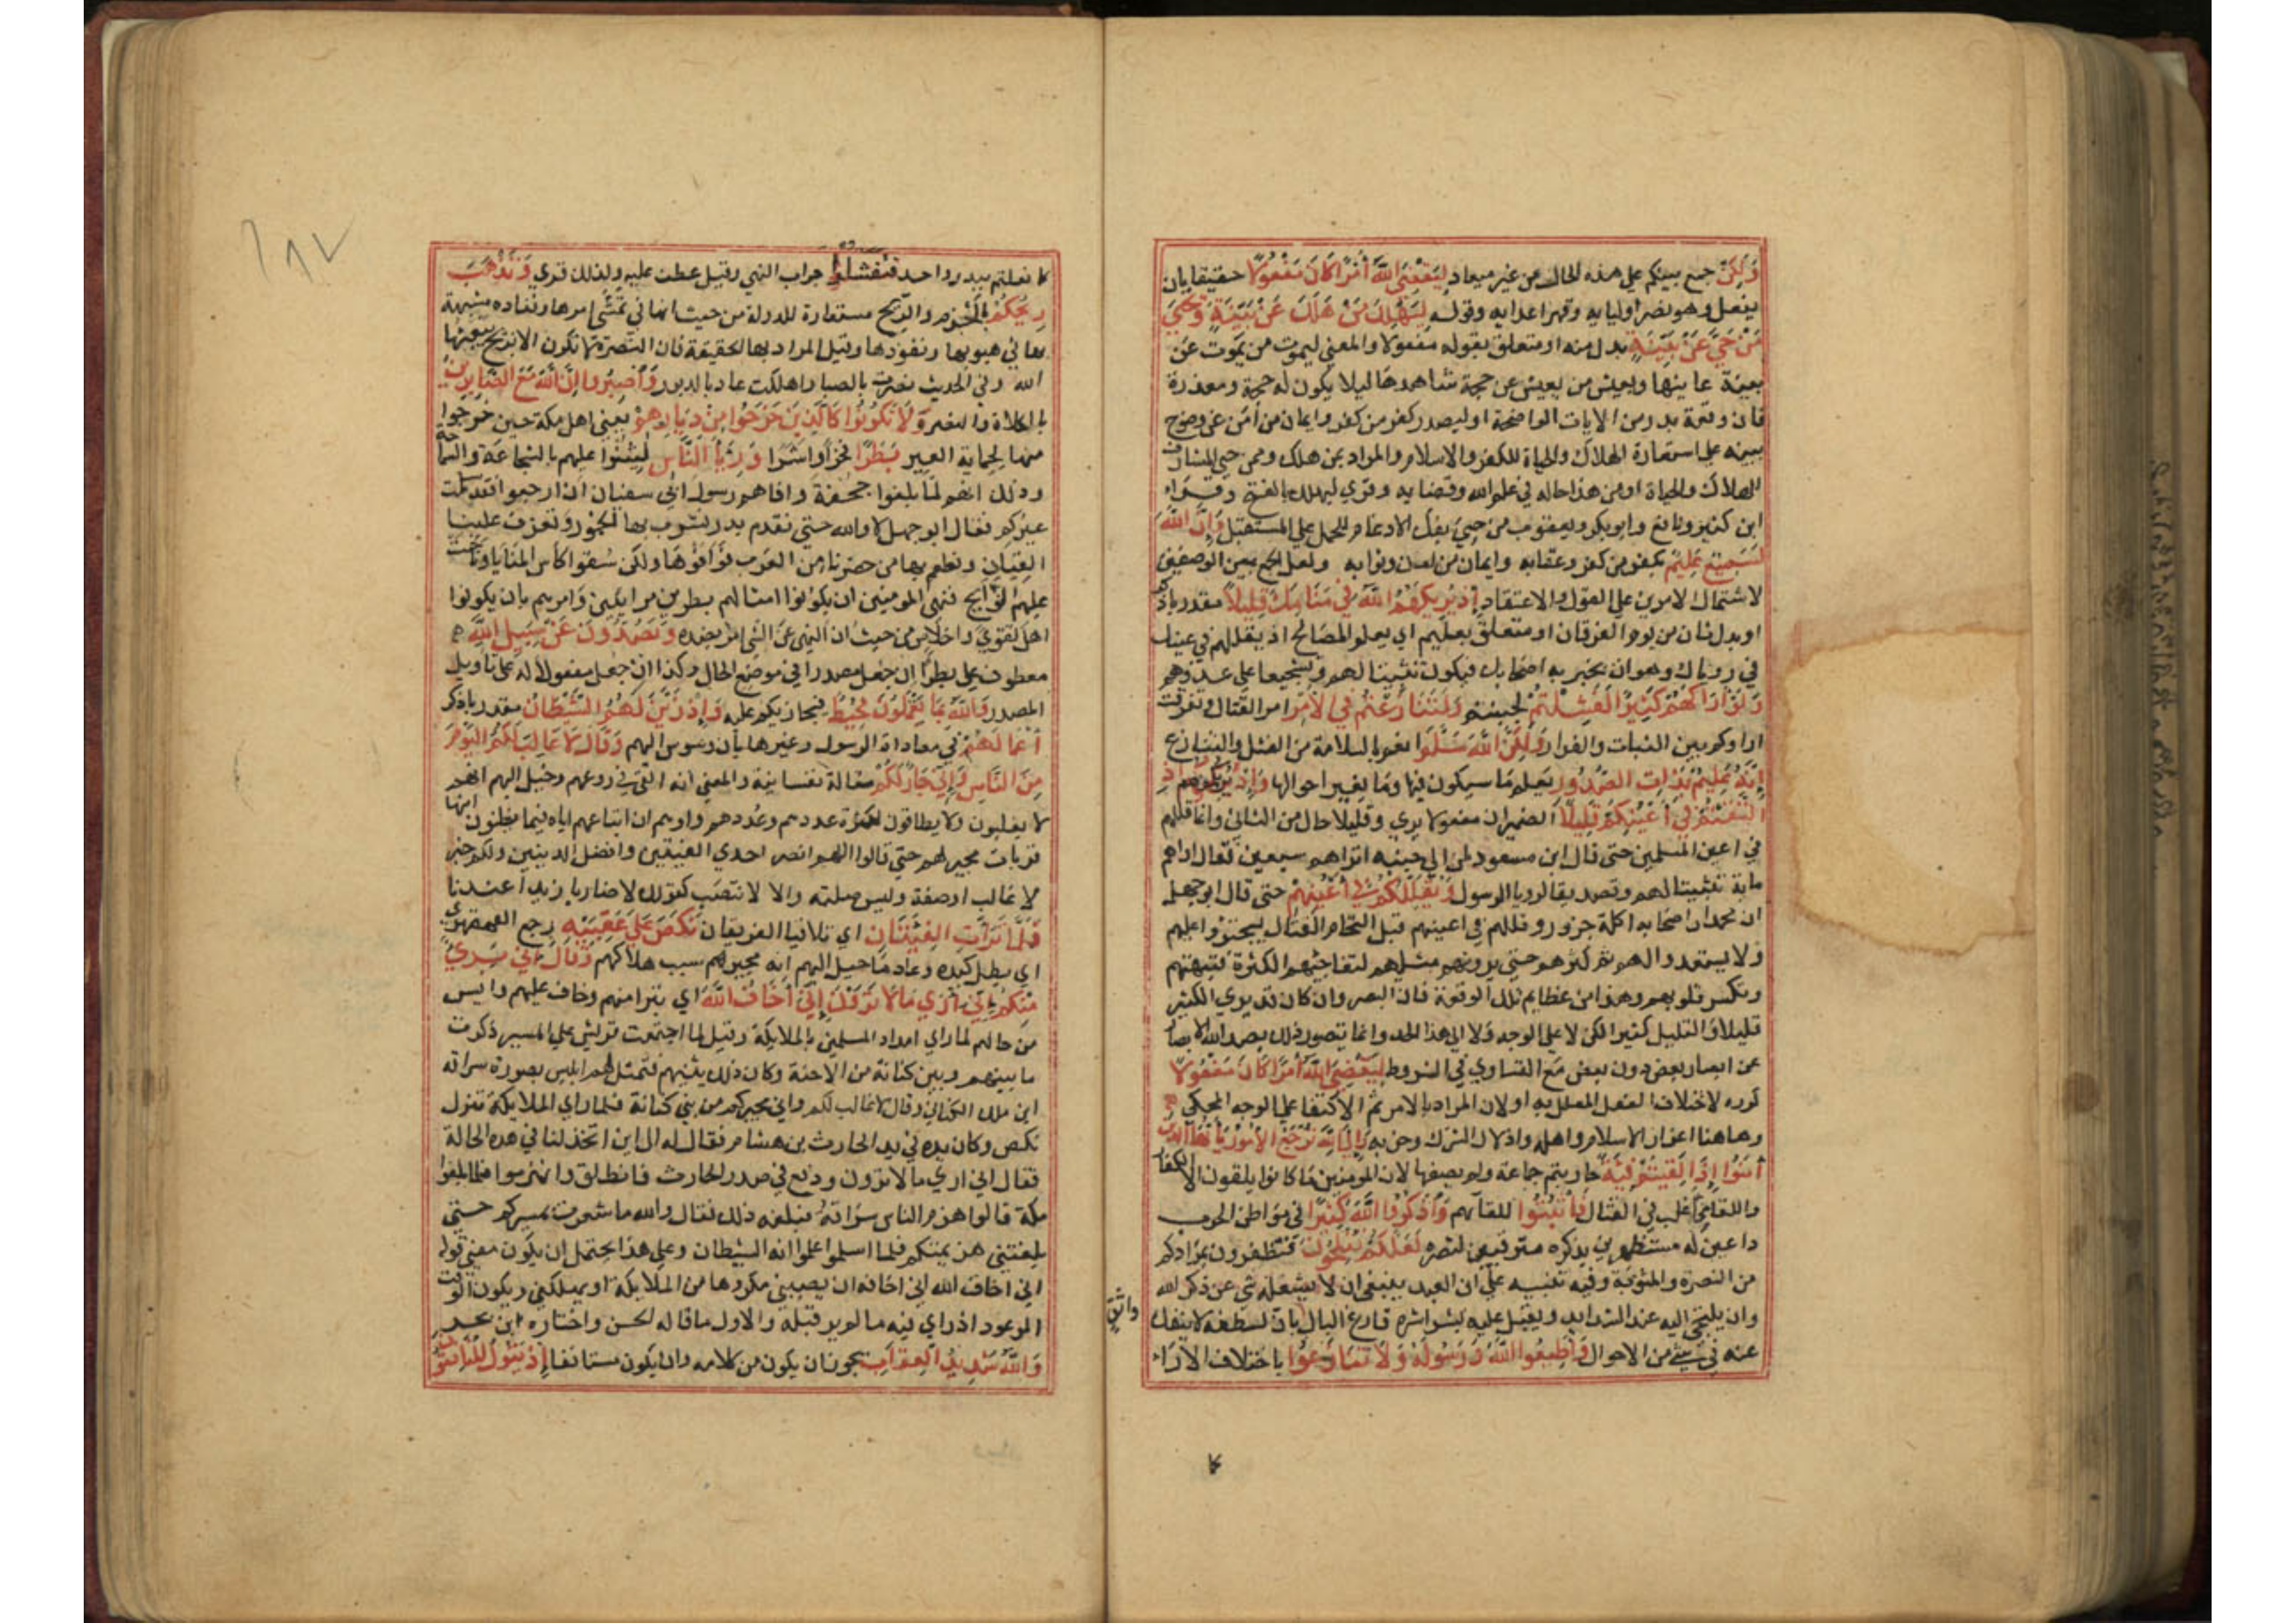 وَلَكِنْ جمع بينكم على هذه الحال من غير ميعاد لِيَقْضِيَ اللَّهُ أَمْرًا كَانَ مَفْعُولًا حقيقا بان
يفعل وهو نصر اوليايه وقهر اعدايه وقوله لِيَهْلِكَ مَنْ هَلَكَ عَنْ بَيِّنَةٍ وَيَحْيَى
مَنْ حَيَّ عَنْ بَيِّنَةٍ بدل منه او متعلق بقوله مفعولا والمعنى ليموت من يموت عن
بينة عاينها ويعيش من يعيش عن حجة شاهدها ليلا يكون له حجة ومعذرة
فان وقعة بدر من الايات الواضحة او ليصدر كفر من كفر وايمان من آمن عن وضوح
بينة على استعارة الهلاك والحياة للكفر والاسلام والمراد بمن هلك وممن حي المشارف
للهلاك والحياة او من هذا حاله في علم الله وقضايه وقري ليهلك بالفتح وقراء
ابن كثير ونافع وابو بكر ويعقوب من حيي بفك الادغام للحمل على المستقبل وَإِنَّ اللَّهَ
لَسَمِيعٌ عَلِيمٌ بكفر من كفر وعقابه وايمان من امن وثوابه ولعل الجمع بين الوصفين
لاشتمال الامرين على القول والاعتقاد إِذْ يُرِيكَهُمُ اللَّهُ فِي مَنَامِكَ قَلِيلًا مقدر باذكر
او بدل ثان من يوم الفرقان او متعلق بعليم اي يعلم المصالح اذ يقللهم في عينك
في روياك وهو ان يخبر به اصحابك فيكون تثبيتا لهم وتشجيعا على عدوهم
وَلَوْ أَرَاكَهُمْ كَثِيرًا لَفَشِلْتُمْ لجبنتم وَلَتَنَازَعْتُمْ فِي الْأَمْرِ امر القتال وتفرقت
اراوكم بين الثبات والفرار وَلَكِنَّ اللَّهَ سَلَّمَ انعم بالسلامة من الفشل والتنازع
إِنَّهُ عَلِيمٌ بِذَاتِ الصُّدُورِ يعلم ما سيكون فيها وما يغير احوالها وَإِذْ يُرِيكُمُوهُمْ إِذِ
الْتَقَيْتُمْ فِي أَعْيُنِكُمْ قَلِيلًا الضميران مفعولا يري وقليلا حال من الثاني وانما قللهم
في اعين المسلمين حتى قال ابن مسعود لمن الى جنبه اتراهم سبعين فقال اراهم
ماية تثبيتا لهم وتصديقا لرويا الرسول وَيُقَلِّلُكُمْ فِي أَعْيُنِهِمْ حتى قال ابو جهل
ان محمدا واصحابه اكلة جزور وقللهم في اعينهم قبل التحام القتال ليجترؤا عليهم
ولا يستعدوا لهم ثم كثرهم حتى يرونهم مثليهم لتفاجئهم الكثرة فتبهتهم
وتكسر قلوبهم وهذا من عظايم تلك الوقعة فان البصر وان كان قد يري الكثير
قليلا والقليل كثيرا لكن لا على الوجه ولا الى هذا الحد وانما يتصور ذلك بصد الله الابصار
عن ابصار بعض دون بعض مع التساوي في الشروط لِيَقْضِيَ اللَّهُ أَمْرًا كَانَ مَفْعُولًا
كرره لاختلاف الفعل المعلل به او لان المراد بالامر ثم الاكتفا على الوجه المحكي
وهاهنا اعزاز الاسلام واهله واذلال الشرك وحزبه وَإِلَى اللَّهِ تُرْجَعُ الْأُمُورُ يَا أَيُّهَا الَّذِينَ
آمَنُوا إِذَا لَقِيتُمْ فِئَةً حاربتم جماعة ولم يصفها لان المومنين ما كانوا يلقون الا الكفار
واللقا مما غلب في القتال فَاثْبُتُوا للقآيهم وَاذْكُرُوا اللَّهَ كَثِيرًا في مواطن الحرب
داعين له مستظهرين بذكره مترقبين لنصره لَعَلَّكُمْ تُفْلِحُونَ تظفرون بمرادكم
من النصرة والمثوبة وفيه تنبيه على ان العبد ينبغي ان لا يشغله شي عن ذكر الله
وان يلتجي اليه عند الشدايد ويقبل عليه بشراشره فارغ البال بان لطفه لا ينفك
واثق
عنه في شي من الاحوال وَأَطِيعُوا اللَّهَ وَرَسُولَهُ وَلَا تَنَازَعُوا باختلاف الاراء
كا
كا فعلتم ببدر واحد فَتَفْشَلُوا جواب النهي وقيل عطف عليه ولذلك قري وَتَذْهَبَ
رِيحُكُمْ بالجزم والريح مستعارة للدولة من حيث انها في تمشي امرها ونفاده مشبهة
بها في هبوبها ونفوذها وقيل المراد بها الحقيقة فان النصرة لا تكون الا بريح يبعثها
الله وفي الحديث نصرت بالصبا واهلكت عاد بالدبور وَاصْبِرُوا إِنَّ اللَّهَ مَعَ الصَّابِرِينَ
بالكلاة والنصر وَلَا تَكُونُوا كَالَّذِينَ خَرَجُوا مِنْ دِيَارِهِمْ يعني اهل مكة حين خرجوا
منها لحماية العير بَطَرًا فخرا واشرا وَرِئَاءَ النَّاسِ ليثنوا عليهم بالشجاعة والسماحة
وذلك انهم لما بلغوا جحفة وافاهم رسول ابي سفيان ان ارجعوا فقد سلمت
عيركم فقال ابو جهل لا والله حتى نقدم بدر نشرب بها الخمور وتعزف علينا
القيان ونطعم بها من حضرنا من العرب فوافوها ولكن سقوا كاس المنايا وناحت
عليهم النوايح فنهى المومنين ان يكونوا امثالهم بطرين مرايين وامرهم بان يكونوا
اهل تقوي واخلاص من حيث ان النهي عن الشي امر بضده وَيَصُدُّونَ عَنْ سَبِيلِ اللَّهِ
معطوف على بطرا ان جعل مصدرا في موضع الحال وكذا ان جعل مفعولا له على تاويل
المصدر وَاللَّهُ بِمَا يَعْمَلُونَ مُحِيطٌ فيجازيكم عليه وَإِذْ زَيَّنَ لَهُمُ الشَّيْطَانُ مقدر باذكر
أَعْمَالَهُمْ في معاداة الرسول وغيرها بان وسوس اليهم وَقَالَ لَا غَالِبَ لَكُمُ الْيَوْمَ
مِنَ النَّاسِ وَإِنِّي جَارٌ لَكُمْ مقالة نفسانية والمعنى انه القى في روعهم وخيل اليهم انهم
لا يغلبون ولا يطاقون لكثرة عددهم وعددهم واوهم ان اتباعهم اياه فيما يظنون انها
قربات مجير لهم حتى قالوا اللهم انصر احدي الفيتين وافضل الدينين ولكم خبر
لا غالب او صفة وليس صلته والا لانتصب كقولك لا ضاربا زيدا عندنا
فَلَمَّا تَرَاءَتِ الْفِئَتَانِ اي تلاقيا الفريقان نَكَصَ عَلَى عَقِبَيْهِ رجع القهقري
اي بطل كيده وعاد ما خيل اليهم انه مجيرهم سبب هلاكهم وَقَالَ إِنِّي بَرِيءٌ
مِنْكُمْ إِنِّي أَرَى مَا لَا تَرَوْنَ إِنِّي أَخَافُ اللَّهَ اي تبرا منهم وخاف عليهم وايس
من حالهم لما راي امداد المسلمين بالملايكة وقيل لما اجتمعت قريش على المسير ذكرت
ما بينهم وبين كنانة من الاحنة وكان ذلك يثنيهم فتمثل لهم ابليس بصورة سراقه
ابن ملك الكناني وقال لا غالب لكم واني مجيركم من بني كنانة فلما راي الملايكة تنزل
نكص وكان يده في يد الحارث بن هشام فقال له الى اين اتخذلنا في هذه الحالة
فقال اني اري ما لا ترون ودفع في صدر الحارث فانطلق وانهزموا فلما بلغوا
مكة قالوا هزم الناس سراقة فبلغه ذلك فقال والله ما شعرت بمسيركم حتى
بلغتني هزيمتكم فلما اسلموا علموا انه الشيطان وعلى هذا يحتمل ان يكون معنى قوله
اني اخاف الله اني اخافه ان يصيبني مكروها من الملايكة او يهلكني ويكون الوقت
الموعود اذ راي فيه ما لم ير قبله والاول ما قاله الحسن واختاره ابن بحر
وَاللَّهُ شَدِيدُ الْعِقَابِ يجوز ان يكون من كلامه وان يكون مستانفا إِذْ يَقُولُ الْمُنَافِقُونَ